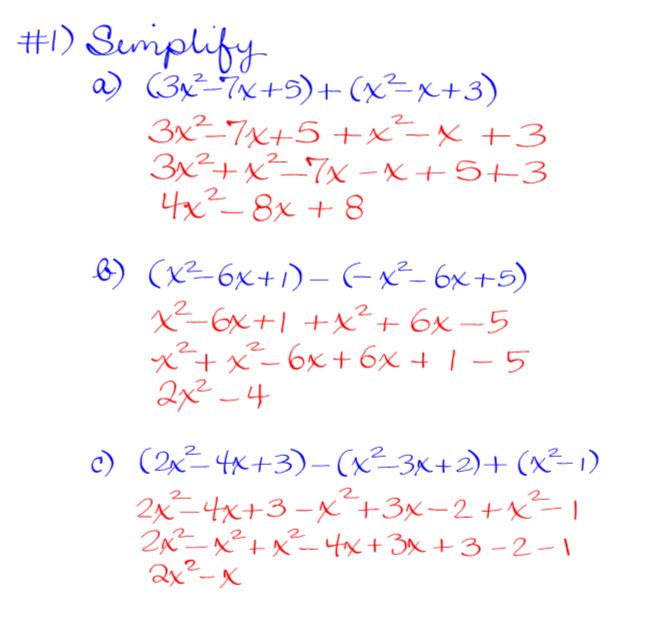 #1) Simplify
a) (3x²-7x+5)+(x²-x+3)
3x²-7x+5+x²-x+3
3x²+x²-7x-x+5+3
4x²-8x+8
b) (x²-6x+1)-(-x²-6x+5)
x²-6x+1+x²+6x-5
x²+x²-6x+6x+1-5
2x²-4
c) (2x²-4x+3)-(x²-3x+2)+(x²-1)
2x²-4x+3-x²+3x-2+x²-1
2x²-x²+x²-4x+3x+3-2-1
2x²-x